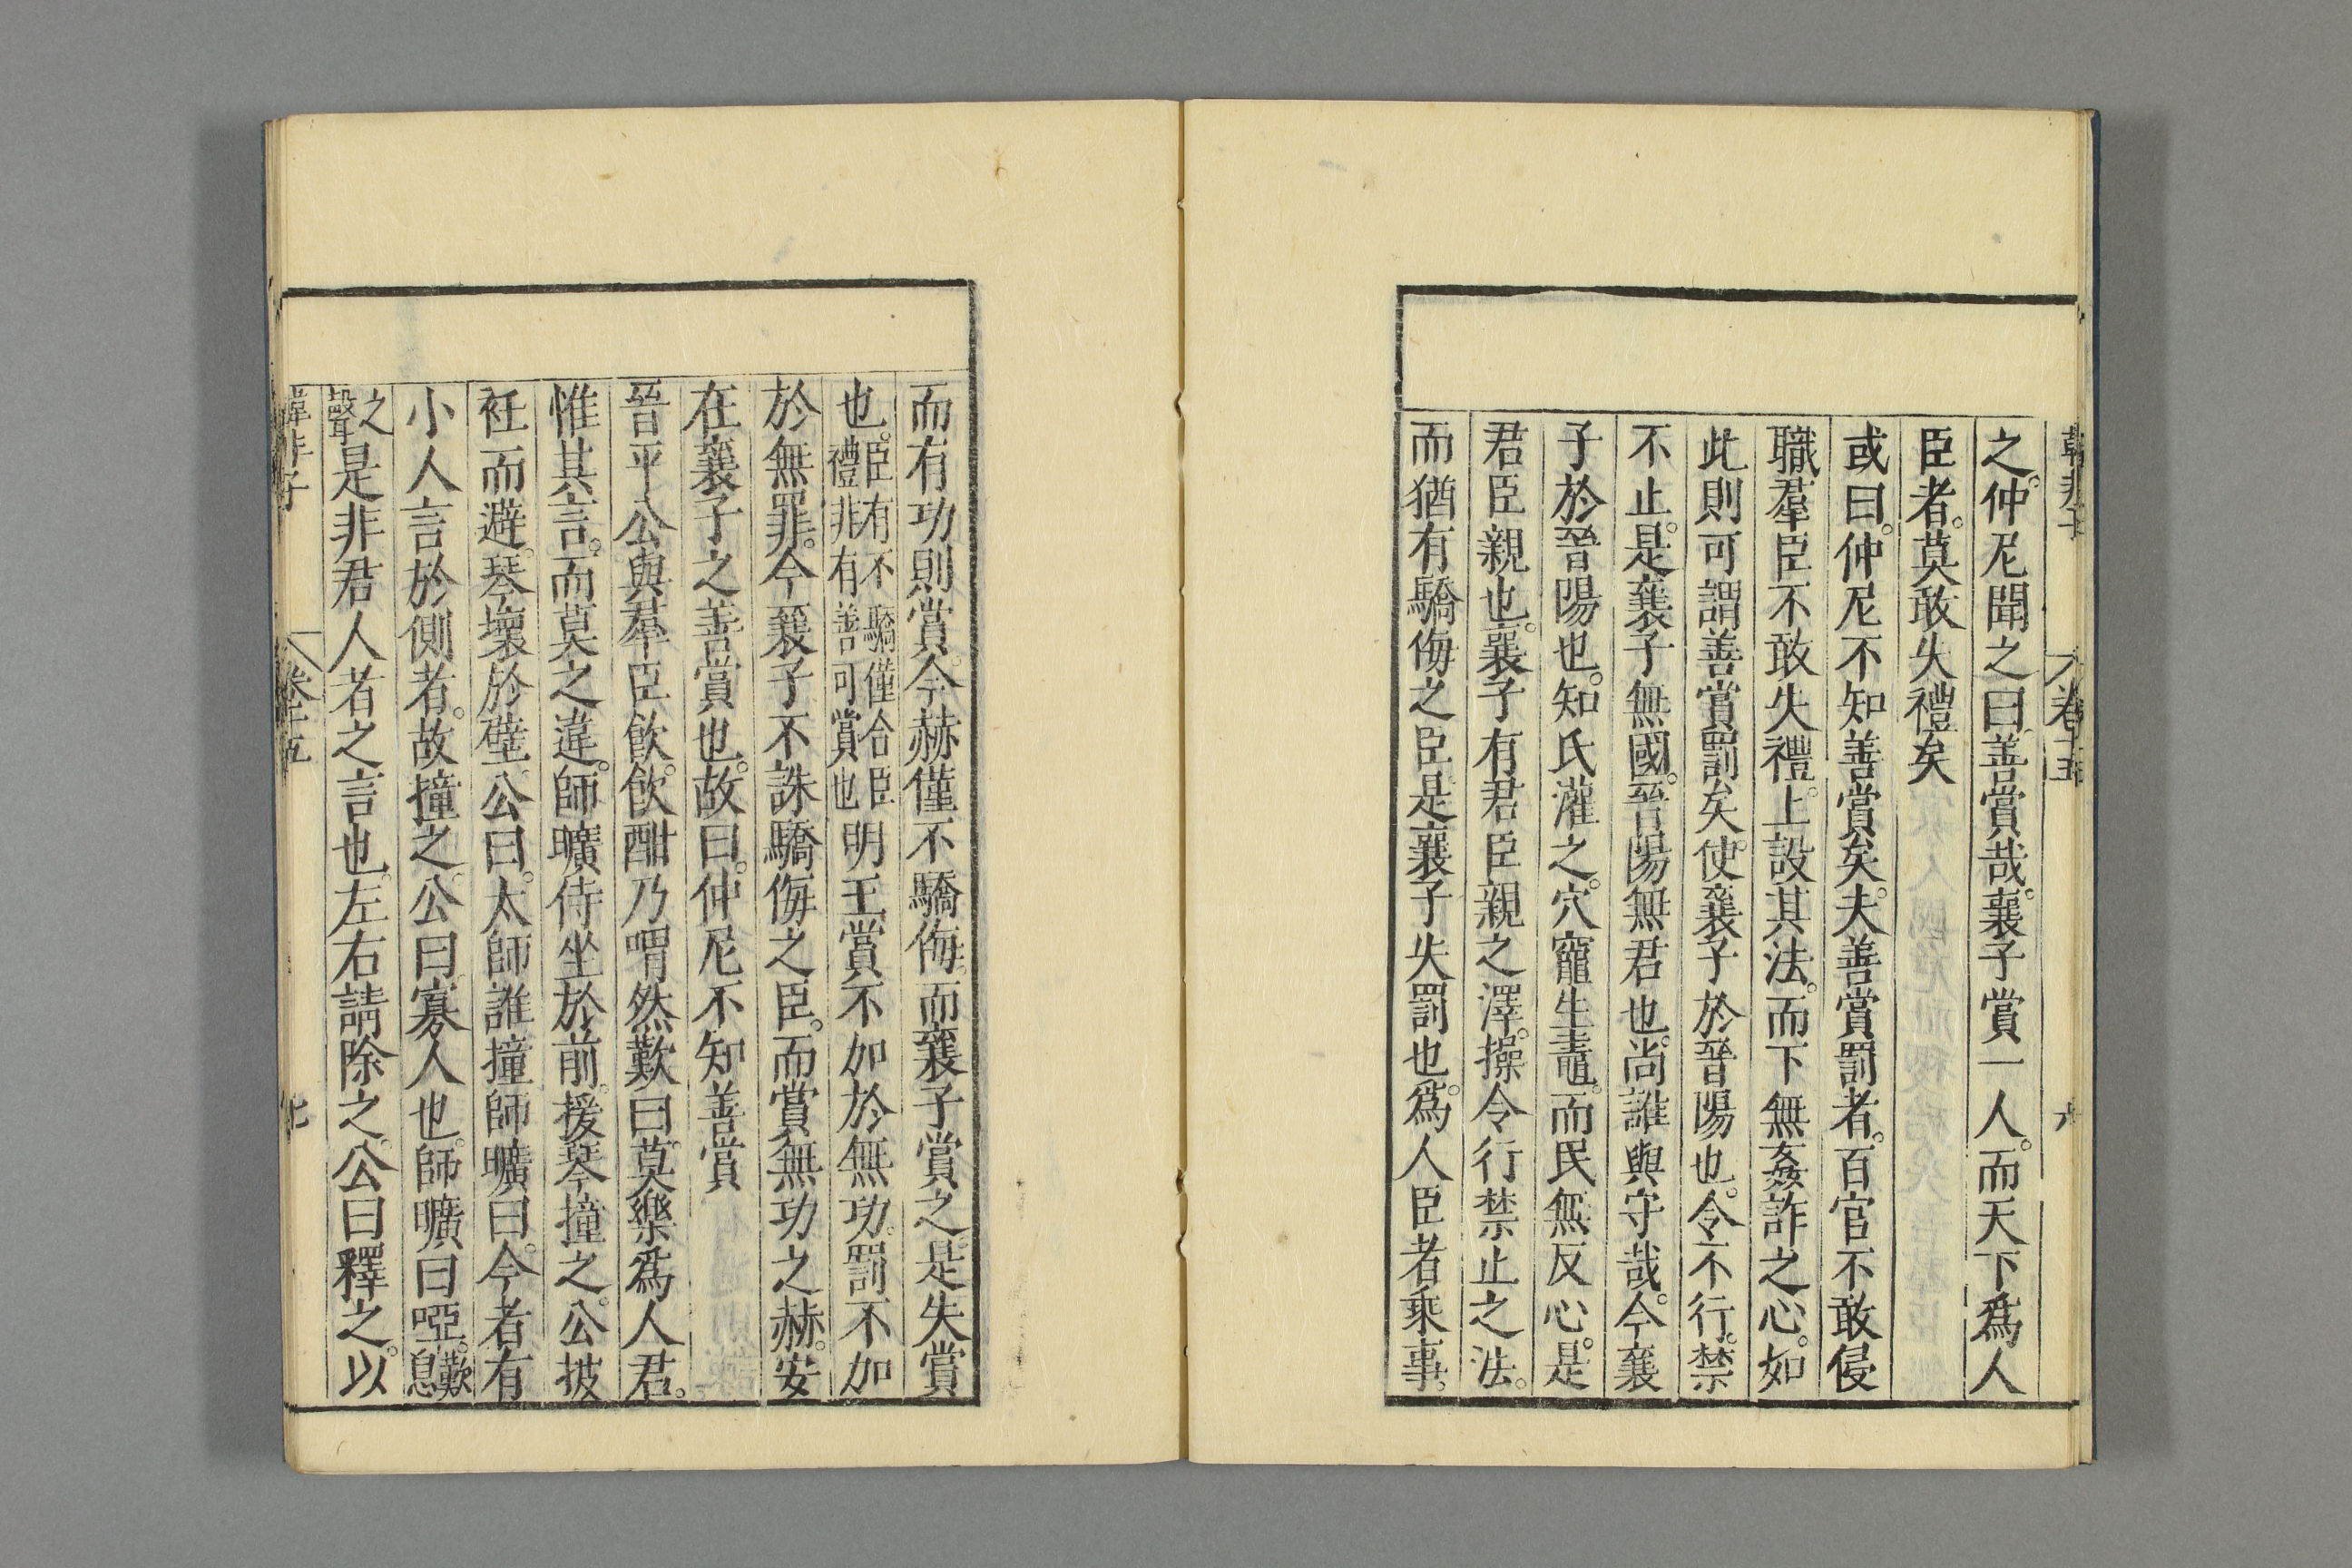 韓非子 卷十五 六
之。仲尼聞之曰。善賞哉。襄子賞一人。而天下爲人
臣者。莫敢失禮矣
或曰。仲尼不知善賞矣。夫善賞罰者。百官不敢侵
職羣臣不敢失禮。上設其法。而下無姦詐之心。如
此則可謂善賞罰矣。使襄子於晉陽也。令不行。禁
不止。是襄子無國。晉陽無君也。尚誰與守哉。今襄
子於晉陽也。知氏灌之。穴竈生鼃。而民無反心。是
君臣親也。襄子有君臣親之澤。操令行禁止之法。
而猶有驕侮之臣是襄子失罰也。爲人臣者乘事。
而有功則賞。今赫僅不驕侮。而襄子賞之。是失賞
也。臣有不驕僅合臣禮非有善可賞也明王賞不如於無功。罰不加
於無罪。今襄子不誅驕侮之臣。而賞無功之赫。安
在襄子之善賞也。故曰。仲尼不知善賞
晉平公與羣臣飲。飲酣乃喟然歎曰。莫樂爲人君。
惟其言。而莫之違。師曠侍坐於前。援琴撞之。公披
衽而避。琴壞於壁。公曰。太師誰撞師曠曰。今者有
小人言於側者。故撞之。公曰。寡人也。師曠曰啞。歎息
之聲是非君人者之言也。左右請除之。公曰釋之。以
韓非子 卷十五 七